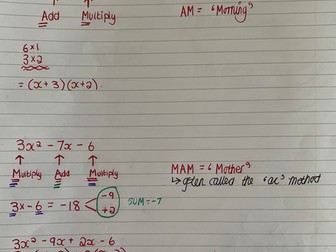 Add Multiply AM = "Morning"
6 × 1
3 × 2
= (x+3)(x+2)
3x² - 7x - 6
Multiply Add Multiply MAM = "Mother"
↳ often called the "ac" method
3 × -6 = -18 -9 +2 SUM = -7
3x² - 9x + 2x - 6